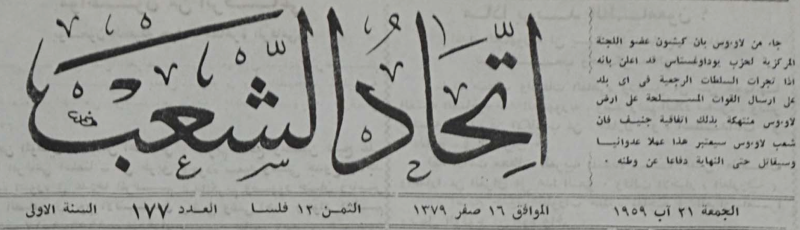 اتحاد الشعب
جاء من لاووس بان كيشون عضو اللجنة
المركزية لحزب بوداوغستاس قد اعلن بانه
اذا تجرات السلطات الرجعية في اي بلد
على ارسال القوات المسلحة على ارض
لاووس منتهكة بذلك اتفاقية جنيف فان
شعب لاووس سيعتبر هذا عملا عدوانيا
وسيقاتل حتى النهاية دفاعا عن وطنه .
الجمعة ٢١ آب ١٩٥٩ الموافق ١٦ صفر ١٣٧٩ الثمن ١٢ فلسا العدد ١٧٧ السنة الاولى